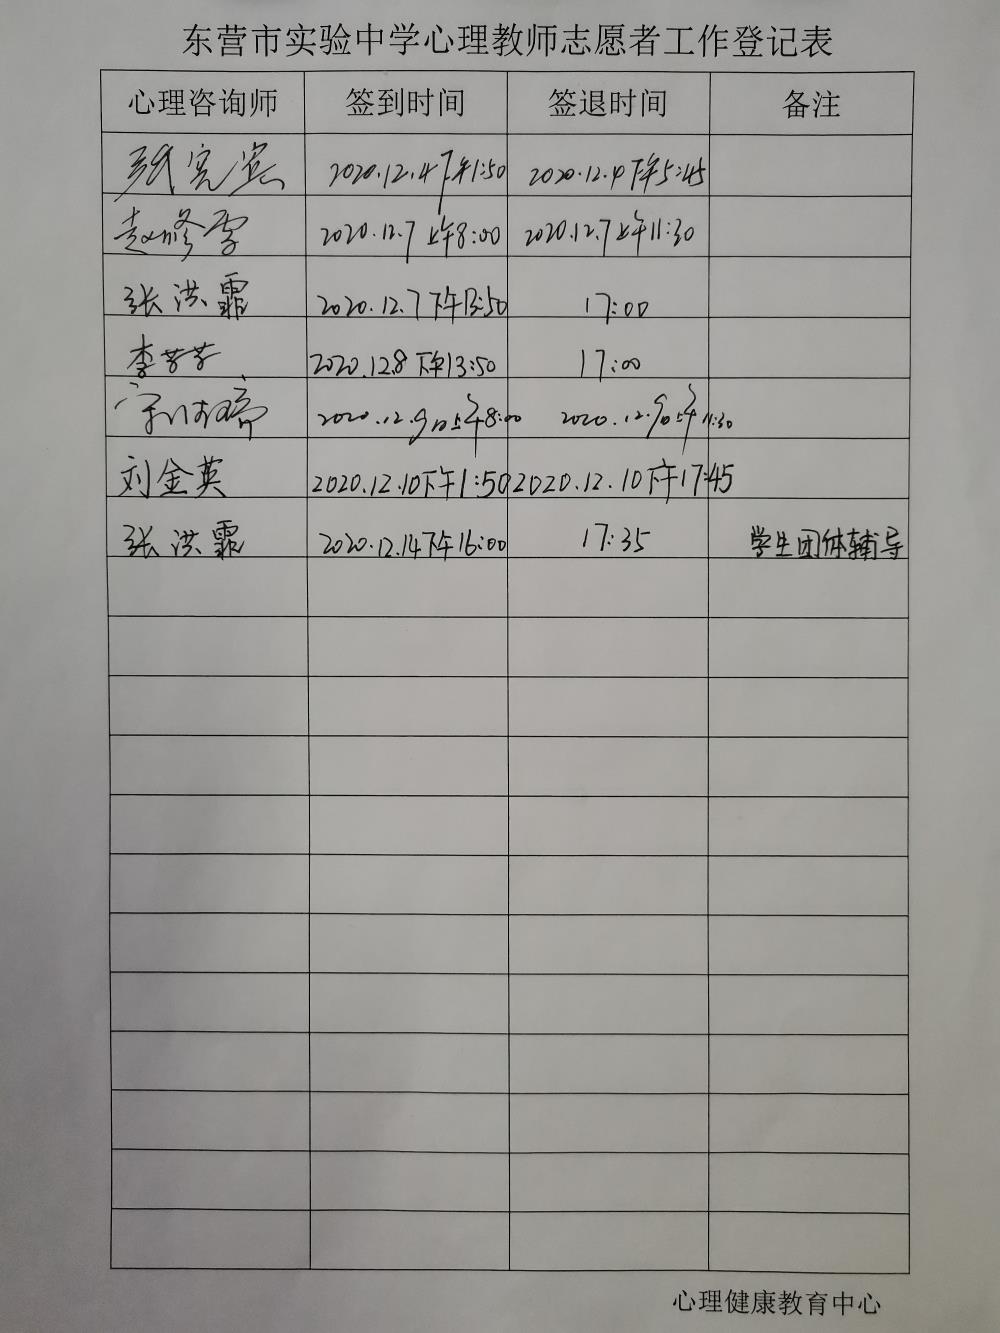 东营市实验中学心理教师志愿者工作登记表
心理咨询师 签到时间 签退时间 备注
2020.12.4下午1:50 2020.12.4下午5:45
赵修雪 2020.12.7上午8:00 2020.12.7上午11:30
张洪霏 2020.12.7下午13:50 17:00
李芳芳 2020.12.8下午13:50 17:00
2020.12.9日上午8:00 2020.12.9日上午11:30
刘金英 2020.12.10下午1:50 2020.12.10下午17:45
张洪霏 2020.12.14下午16:00 17:35 学生团体辅导
心理健康教育中心